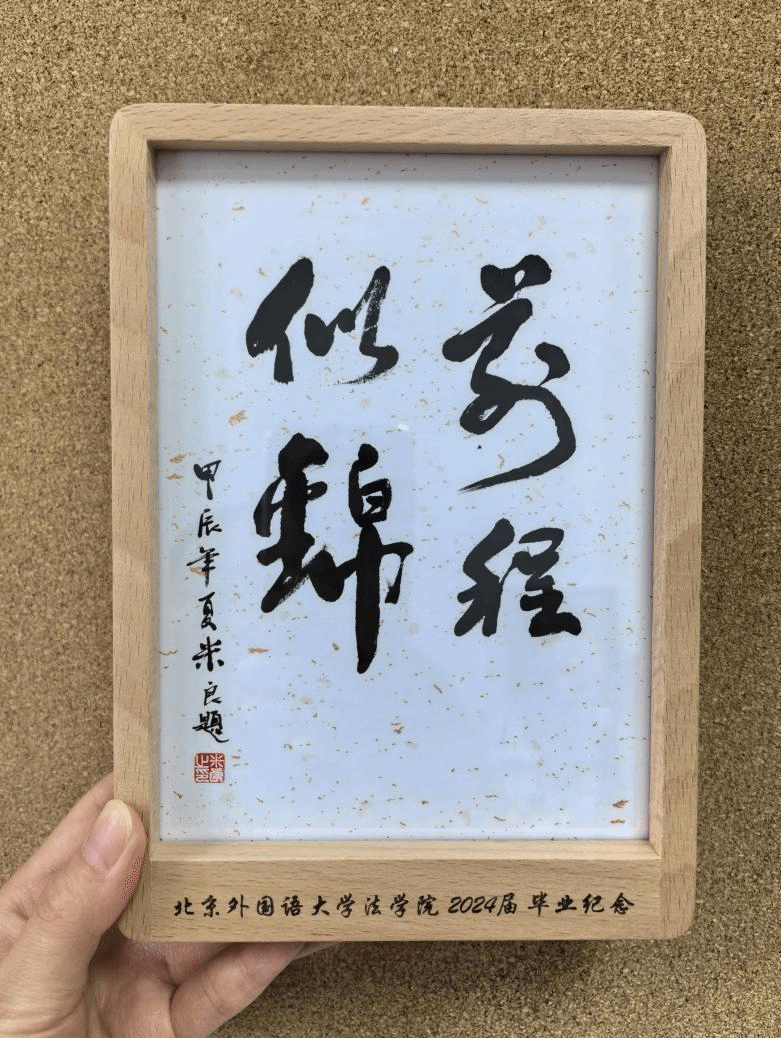 前程
似錦
甲辰年夏米良題
米良之印
北京外国语大学法学院 2024届 毕业纪念